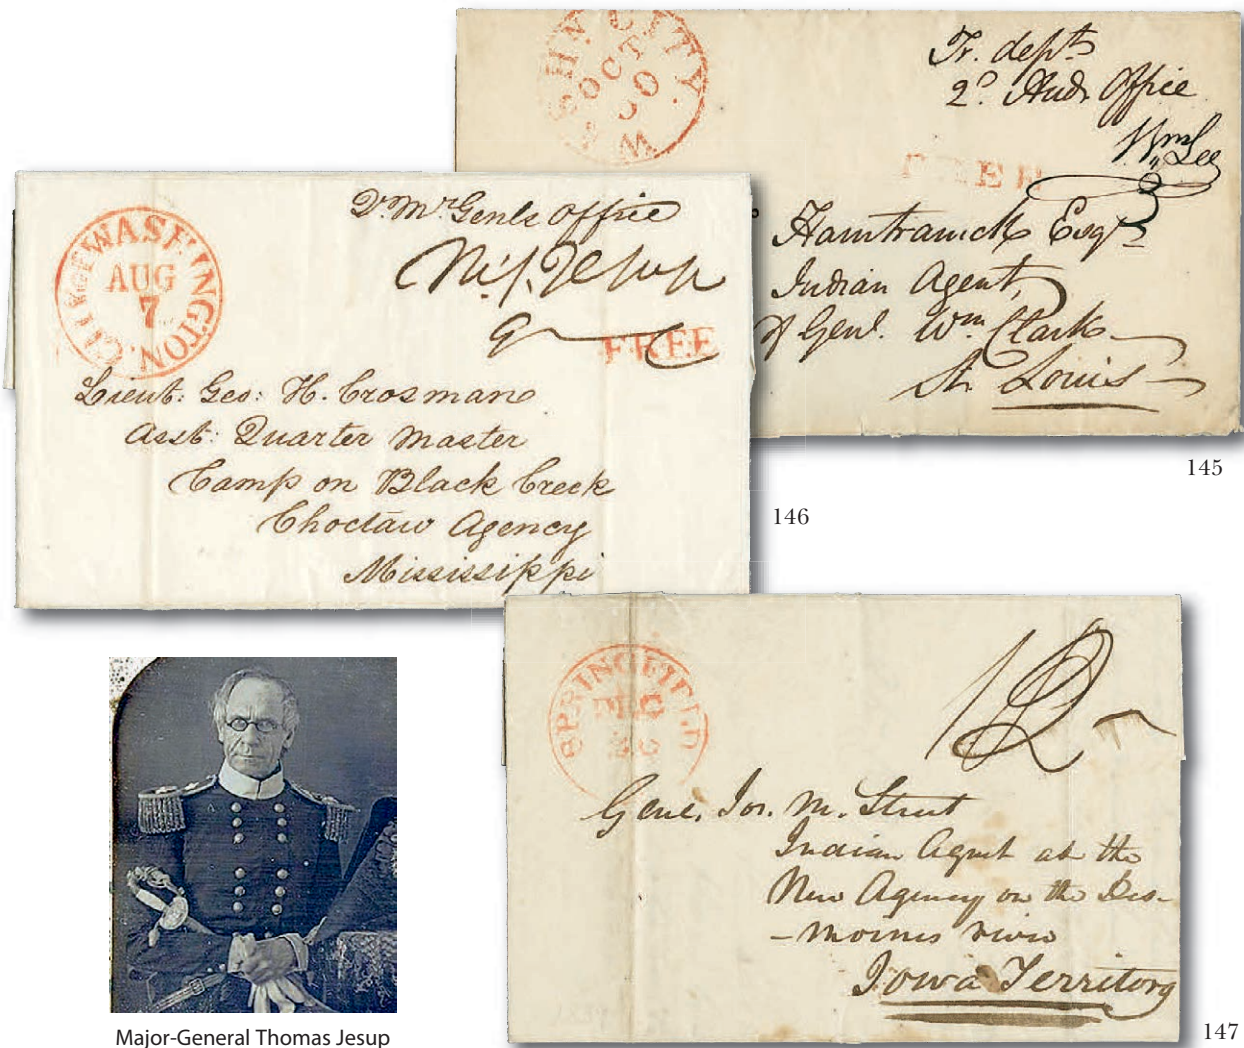 WASHN. CITY.
OCT
30
Tr. dept
2d. Audr Office
Wm Lee
FREE
Hamtramck Esqr
Indian Agent,
of Genl. Wm. Clark
St. Louis
145
CITY OF WASHINGTON.
AUG
7
Qr. Mr. Genls Office
FREE
Lieut: Geo: H. Crosman
Asst: Quarter Master
Camp on Black Creek
Choctaw Agency
Mississippi
146
SPRINGFIELD
DEC
26
12
Genl. Jos. M. Street
Indian Agent at the
New Agency on the Des-
-moines river
Iowa Territory
147
Major-General Thomas Jesup